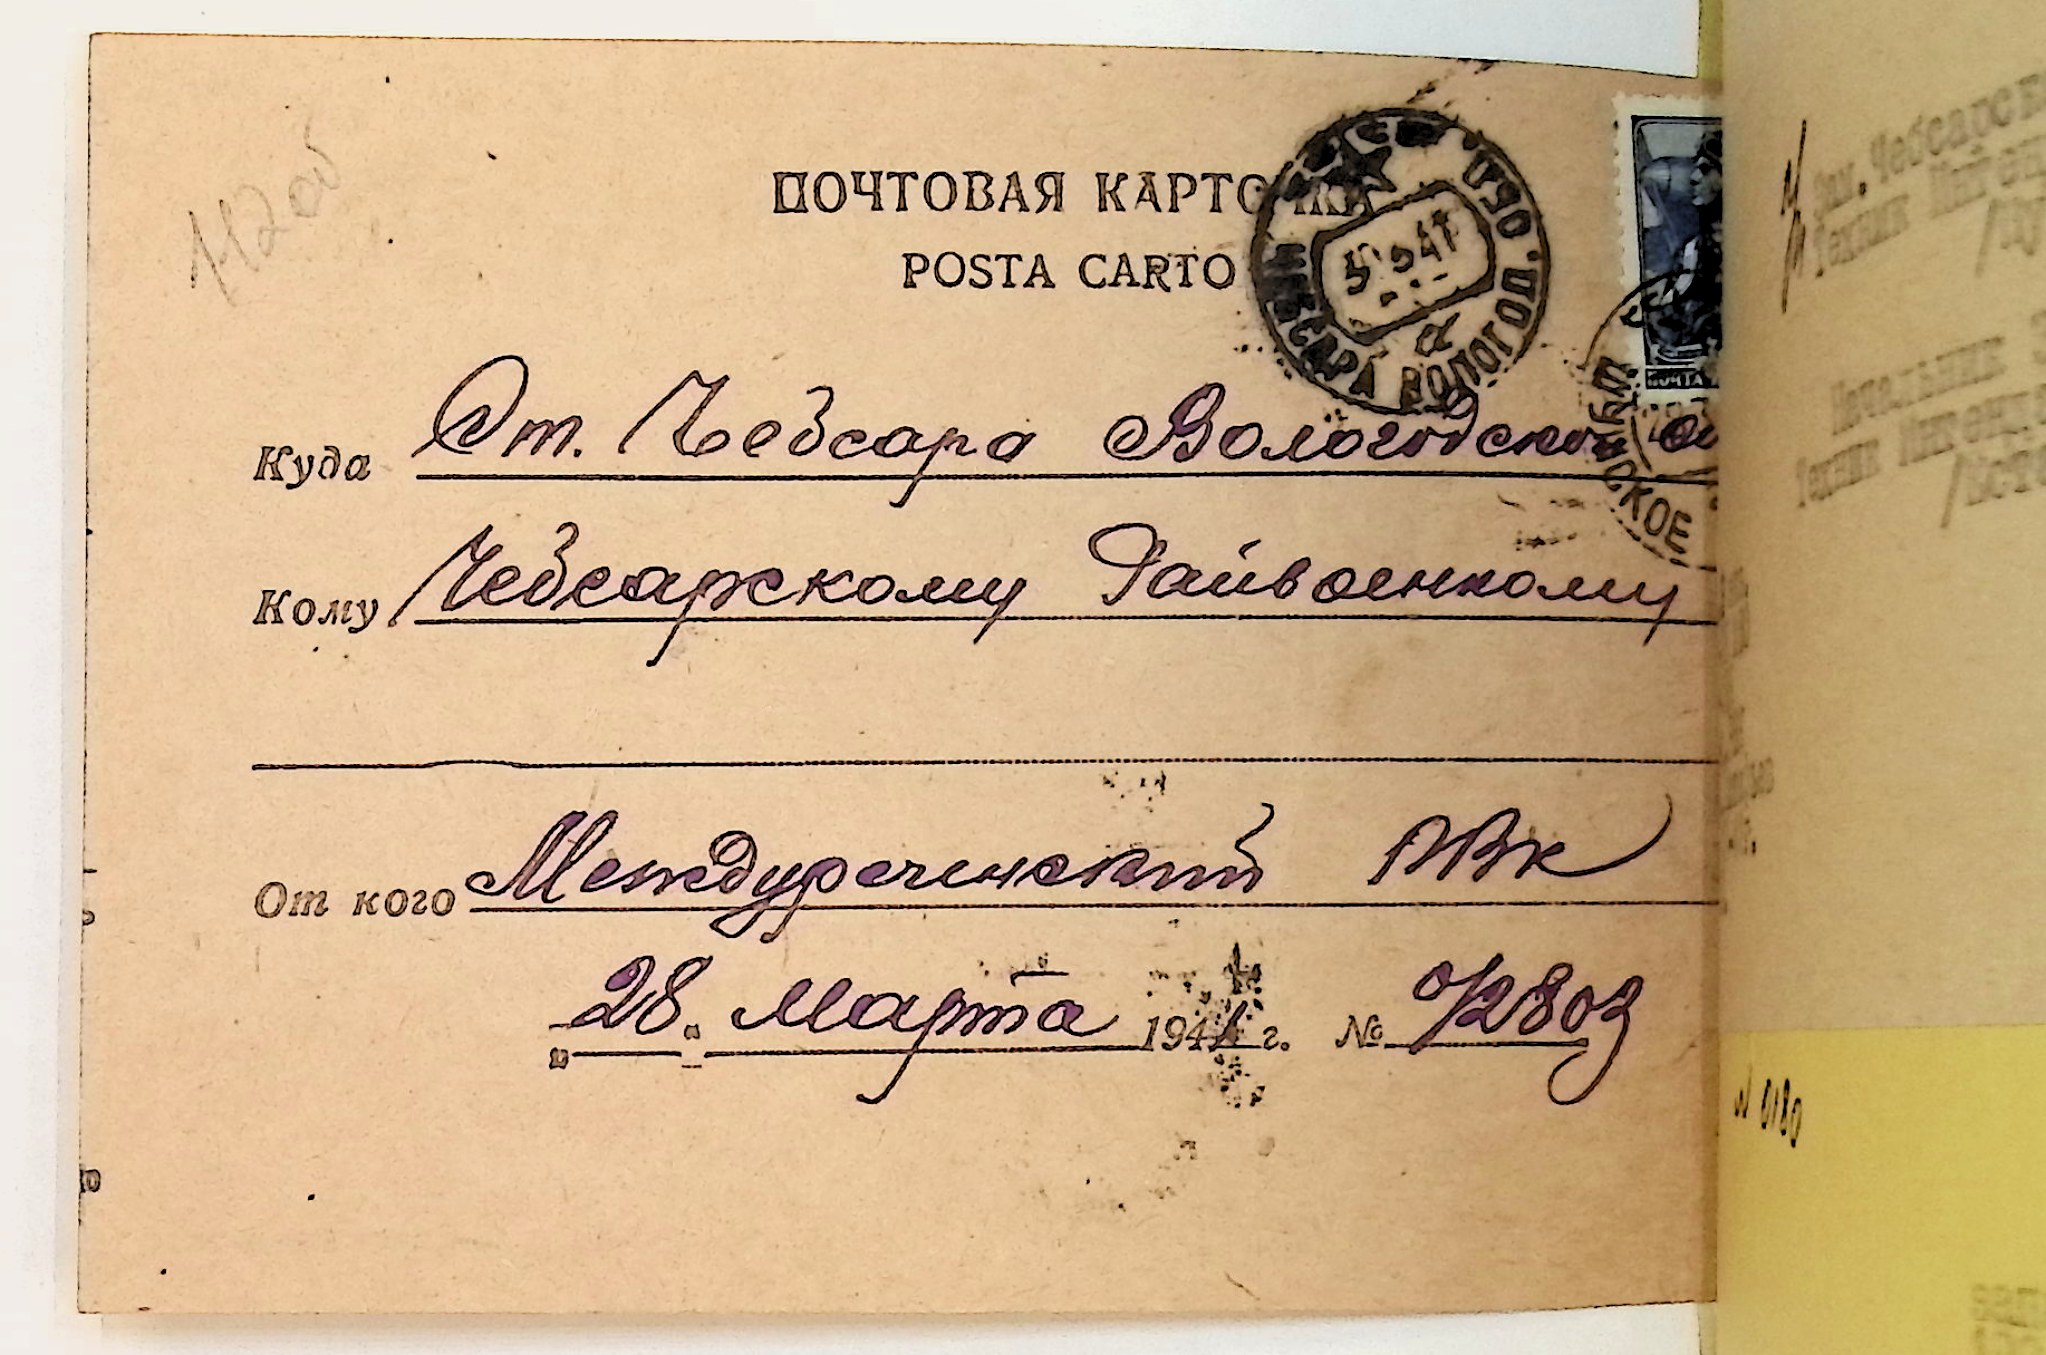 112 об
ПОЧТОВАЯ КАРТОЧКА
POSTA CARTO
ЧЕБСАРА ВОЛОГОД. ОБЛ.
а
ПОЧТА
СКОЕ
Куда Ст. Чебсара Вологодской о
Кому Чебсарскому Райвоенкому
От кого Междуреченский РВК
28. марта 1941 г. № 0/2803
Чебсарск
Техник Интенд
Начальник
Техник Интенд
N 0180